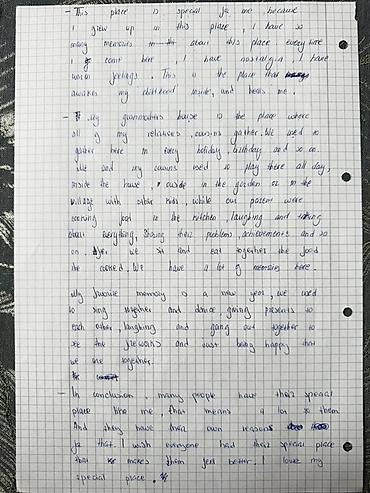 - This place is special for me because
I grew up in this place, I have so
many memories about this place every time
I come here, I have nostalgia, I have
warm feelings. This is the place that
awakes my childhood inside, and heals me.
- My grandmothers house is the place where
all of my relatives, cousins gather. We used to
gather here in every holiday, birthday and so on.
Me and my cousins used to play there all day,
inside the house, outside in the garden or in the
village with other kids, while our parents were
cooking food in the kitchen, laughing and talking
about everything, sharing their problems, achievements and so
on. After we sit and eat together the food
the cooked. We have a lot of memories here.
My favorite memory is a new year, we used
to sing together and dance, giving presents to
each other, laughing and going out together to
see the fireworks and just being happy that
we are together.
- In conclusion, many people have their special
place like me, that means a lot to them
And they have their own reasons
for that. I wish everyone had their special place
that makes them feel better. I love my
special place.